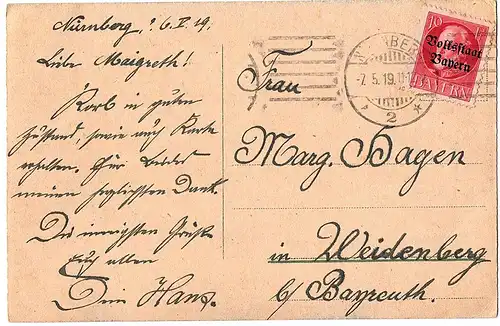 Nürnberg, 6.V.19.
Liebe Maigreth!
Korb in guten
Zustand, sowie auch Karte
erhalten. Für beides
meinen herzlichsten Dank.
Die innigsten Grüße
Euch allen
Dein Hans.
Frau
Marg. Hagen
in Weidenberg
b/ Bayreuth.
NÜRNBERG
-7.5.19.
* 2 *
10
Volksstaat
Bayern
BAYERN